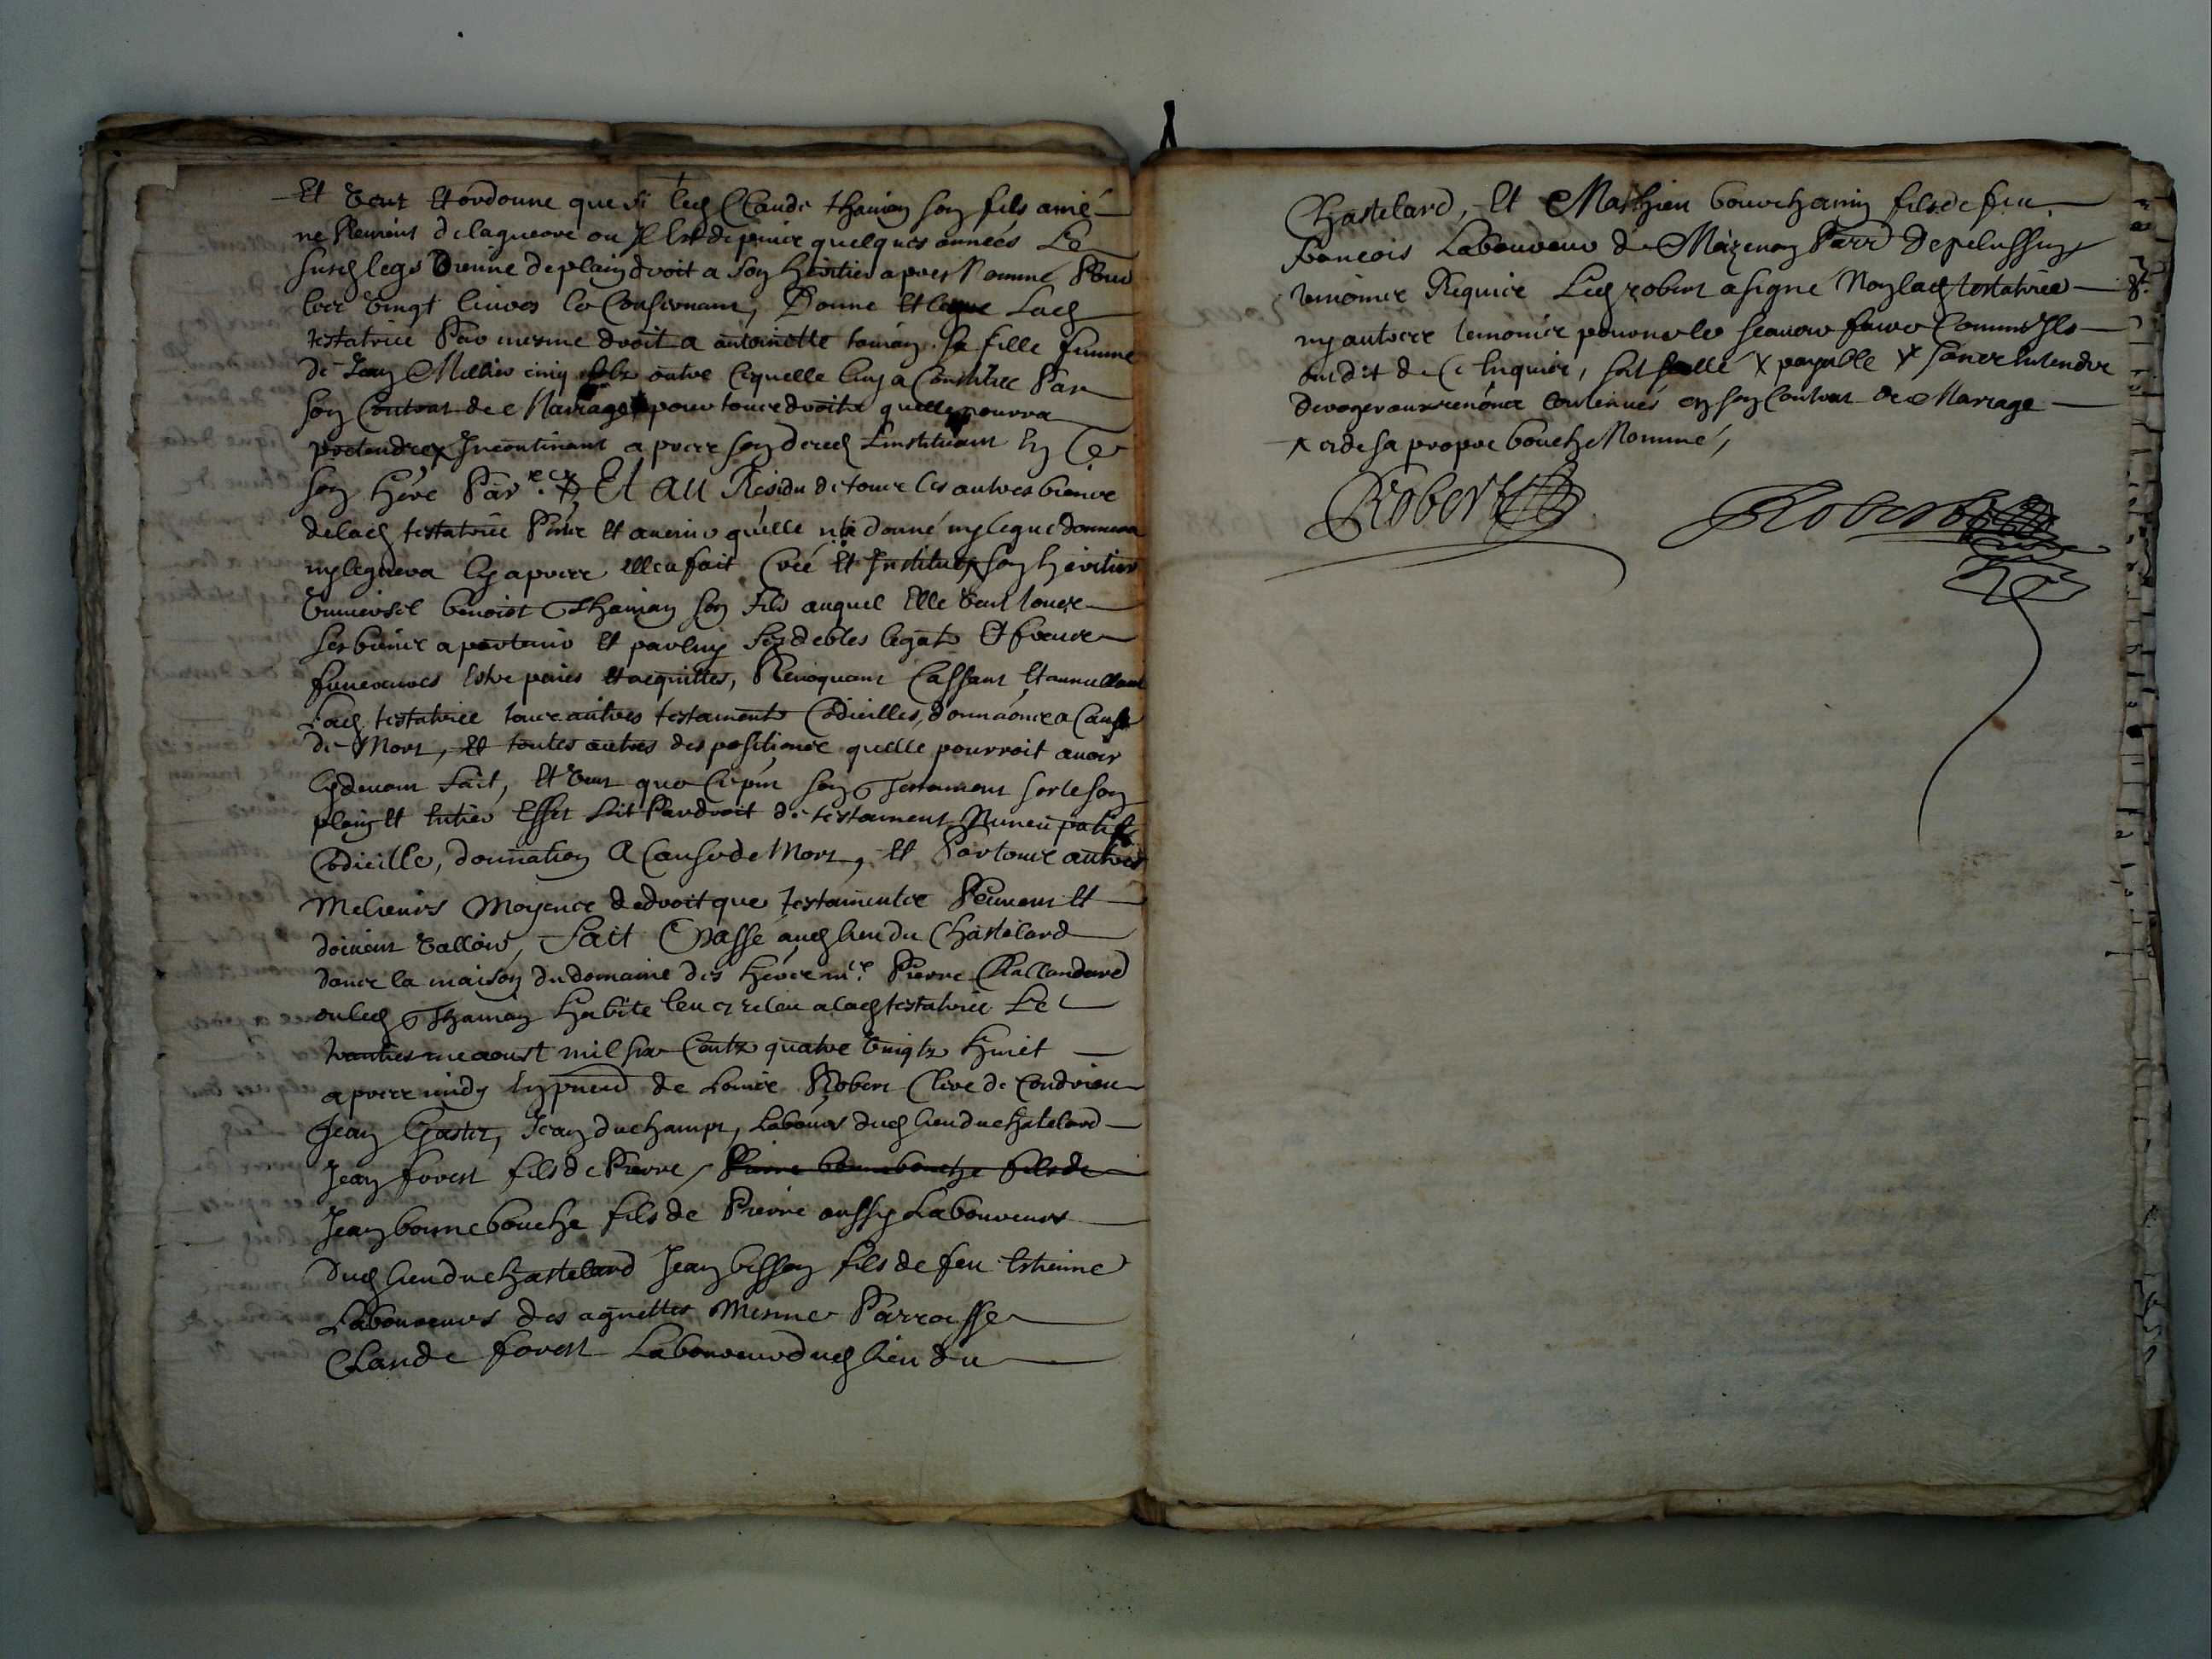 Et veut et ordonne que si led Claude thaman son fils ainé
ne revient de la guerre ou Il est depuis quelques années Le
susd legs vienne de plain droit a son heritier apres Nommé Pour
les vingt livres le Concernant, Donne et legue Lad
testatrice Par mesme droit a antoinette taman sa fille femme
de Jean Mellier cinq outre ce quelle luy a Constitué Par
son Contrat de Mariage pour tous droits quelle pourra
pretendre Incontinant apres son deced Linstituant En Ce
son here Par.re Et au Residu de tous les autres biens
delad testatrice Pnts et avenir quelle n'a donné ny legué donnera
ny leguera Cy apres elle a fait Créé et Institué son heritier
universel benoist Thaman son fils auquel Elle veut tous
ses biens apartenir et par luy ses debtes legats et frais
funeraires Estre paiés et acquittes, Revoquant Cassant et annullant
Lad testatrice tous autres testaments Codicilles, donnaons a Cause
de Mort, et toutes autres dispositions quelle pourroit avoir
Cy devant fait, et veut que Ce pnt son Testament sorte son
plein et entier Effet soit Par droit de testament Nuncupatif
Codicille, donnation a Cause de Mort, et Par tous autres
Melieurs Moyens de droit que testaments Peuvent et
doivent valloir, Fait & Passé aud lieu du Chastelard
dans la maison du domaine des hers m.re Pierre
ou led Thaman habite leu et releu a lad testatrice Le
aoust mil six Centz quatre vingtz huict
apres midy En pnce de Louis Robert Clerc de Condrieu
Jean Gaster, Jean duchamps, Labours dud lieu du chatelard
Jean forest fils de Pierre, Pierre bonnebouche fils de
Jean bonnebouche fils de Pierre aussy Laboureurs
dud lieu du chastelard Jean besson fils de feu Estienne
Laboureurs des agnettes Mesme Parroisse
Claude forest Laboureur dud lieu du
Chastelard, et Mathieu bouchamin fils de feu
francois Laboureur de Mezenay Parr de pelussin
temoins Requis Led robert a signé Non lad testatrice
ny autres temoins pour ne le scavoir faire Comme Ils
ont dit de Ce Enquis, payable sans Entendre
deroger aux renons Contenues en son Contrat de Mariage
et de sa propre bouche Nommé,
Robert Robert